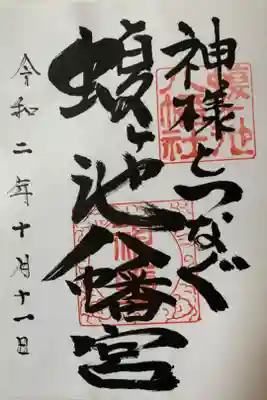 神様とつなぐ
蝮ヶ池八幡宮
令和二年十月十一日